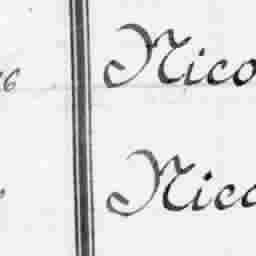 6 Nico
Nico